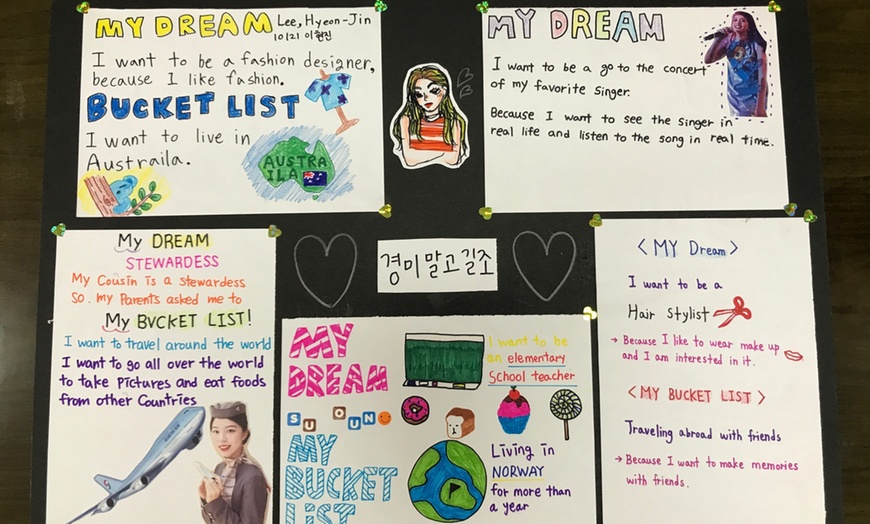 MY DREAM
Lee, Hyeon-Jin
10121 이현진
I want to be a fashion designer,
because I like fashion.
BUCKET LIST
I want to live in
Austraila.
AUSTRA
ILA
MY DREAM
I want to be a go to the concert
of my favorite Singer.
Because I want to see the Singer in
real life and listen to the song in real time.
My DREAM
STEWARDESS
My Cousin is a Stewardess
So. my Parents asked me to
My BVCKET LIST!
I want to travel around the world
I want to go all over the world
to take Pictures and eat foods
from other Countries
경미말고길조
MY
DREAM
I want to be
an elementary
School teacher
SU OUN
MY
BUCKET
LIST
Living in
NORWAY
for more than
a year
< MY Dream >
I want to be a
Hair Stylist
→ Because I like to wear make up
and I am interested in it.
< MY BUCKET LIST >
Traveling abroad with friends
→ Because I want to make memories
with friends.